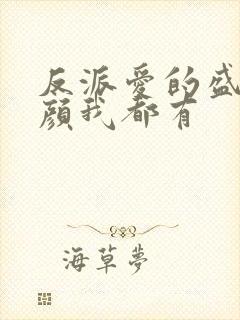 反派愛的盛
顔我都有
海草夢